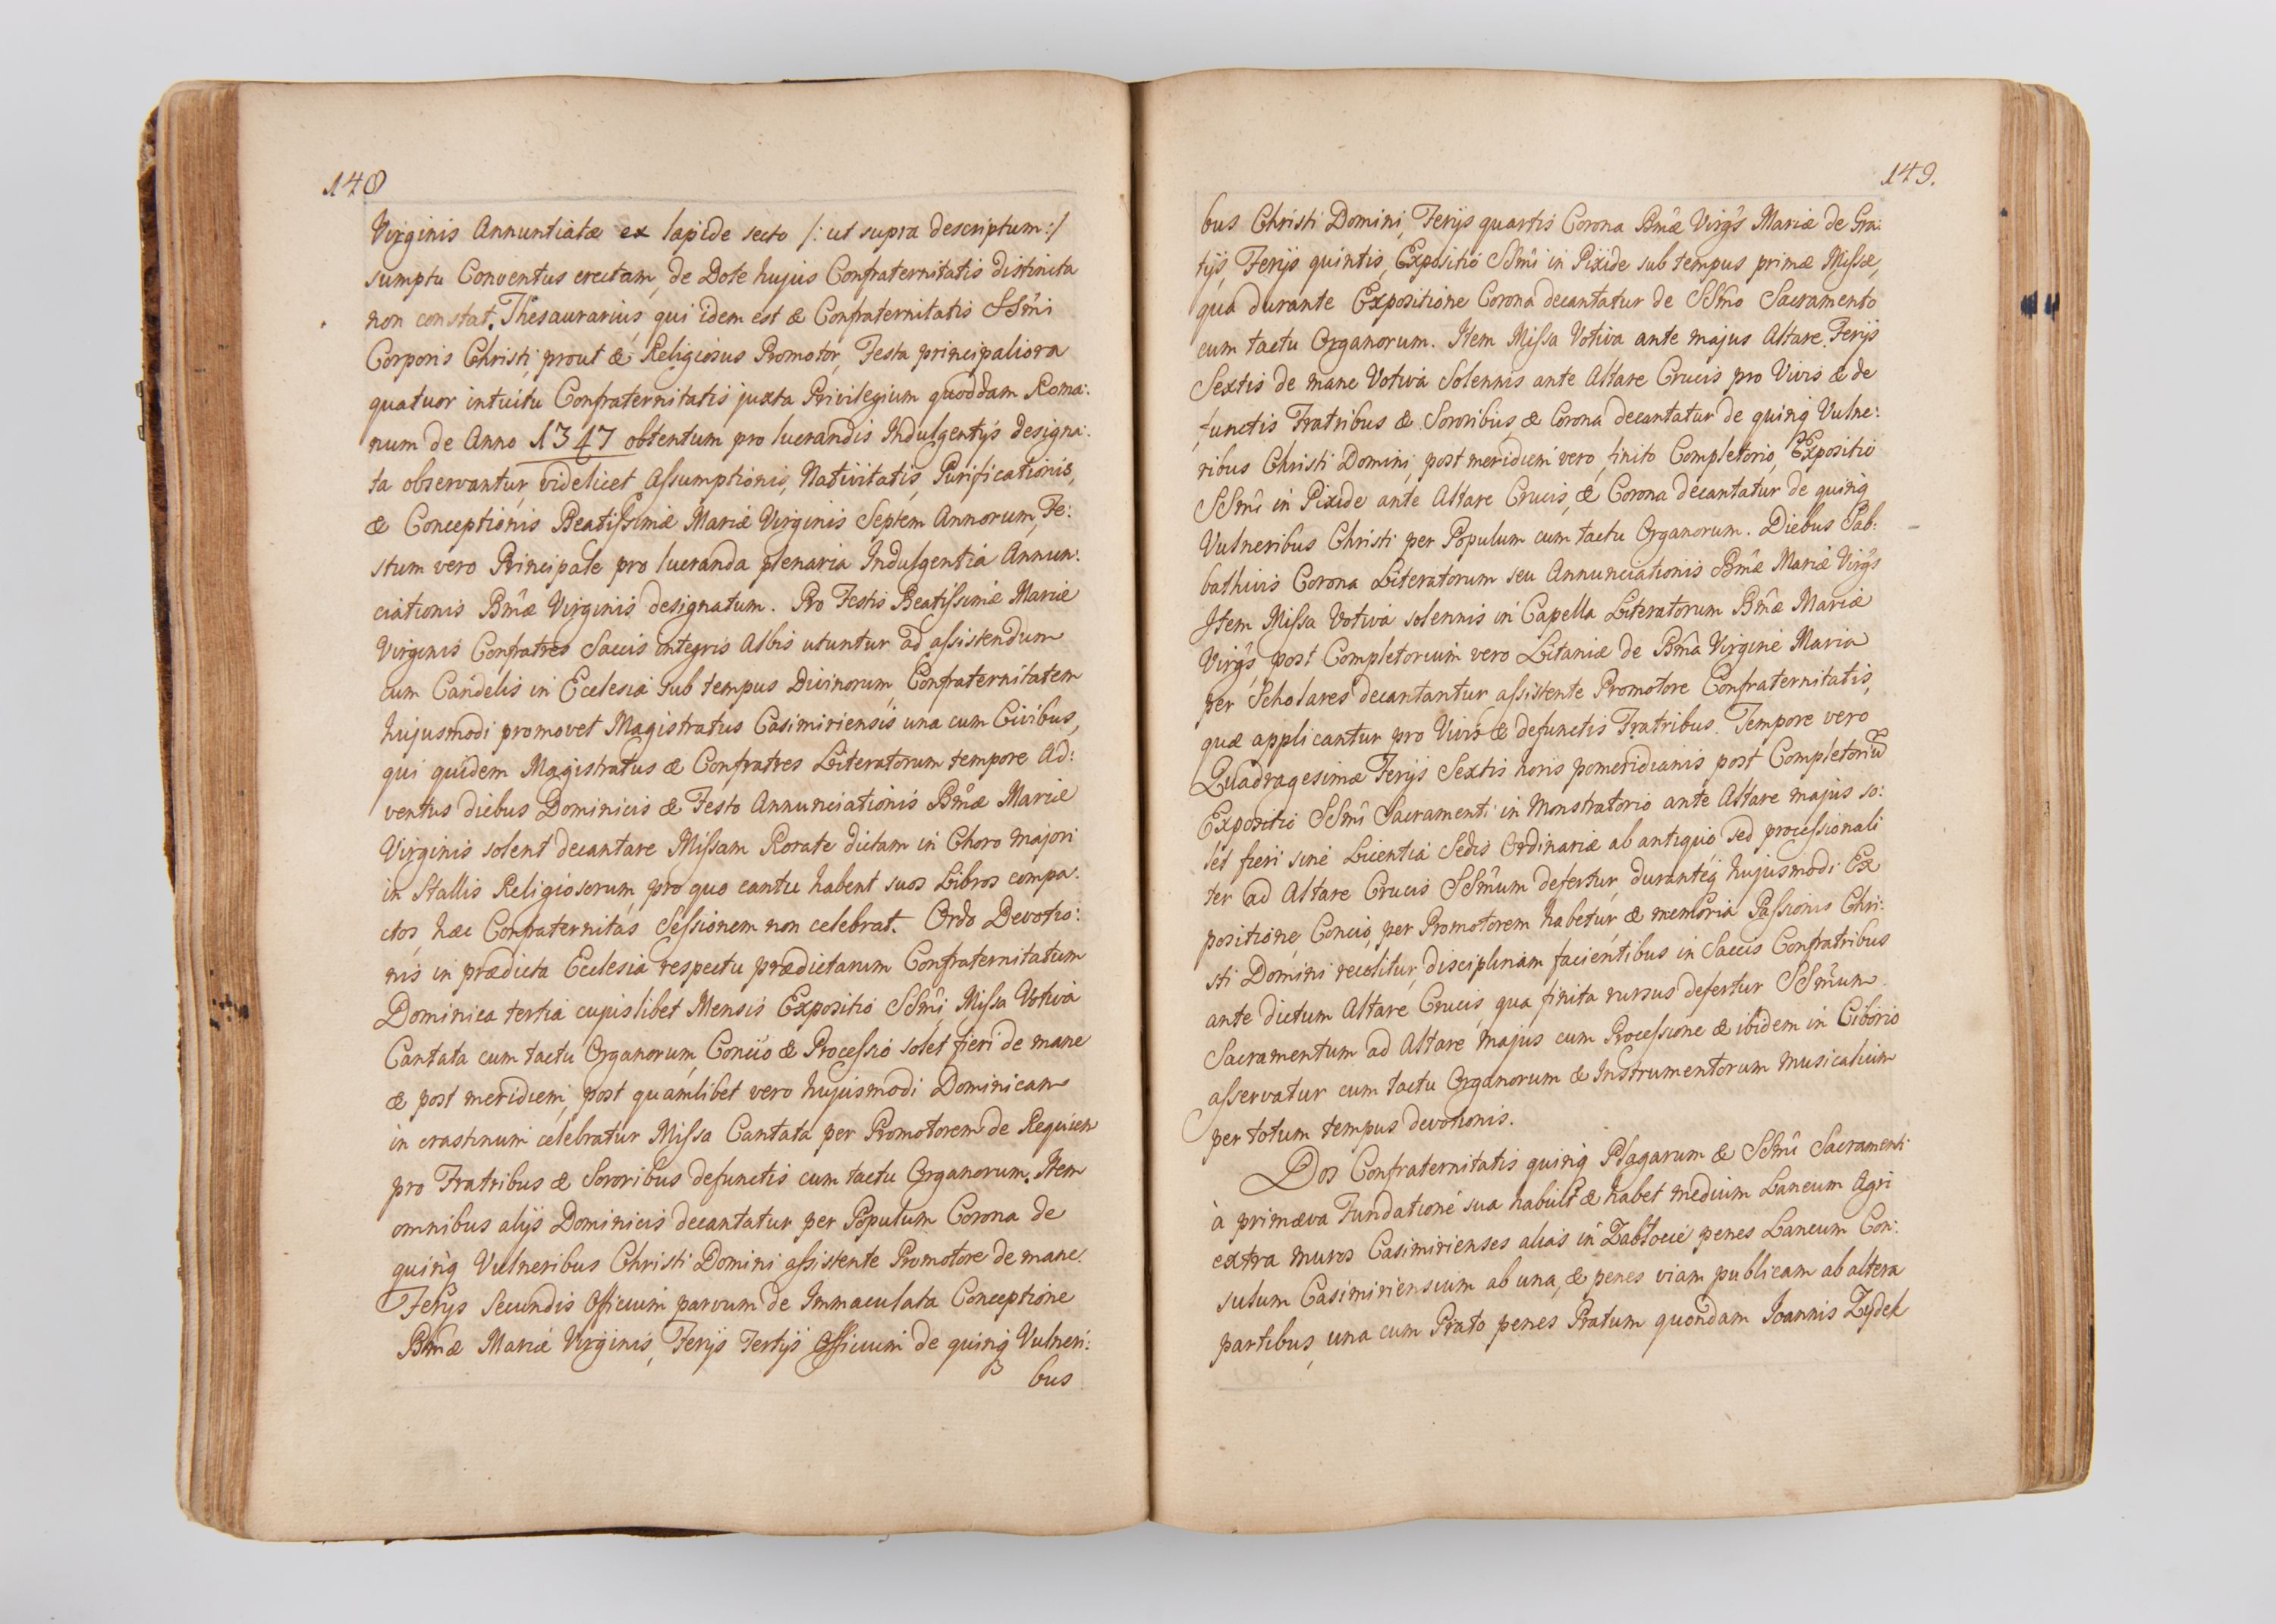 148
Virginis Annuntiatæ ex lapide secto /: ut supra descriptum :/
sumptu Conventus erectam, de Dote hujus Confraternitatis distincta
non constat. Thesaurarius, qui idem est & Confraternitatis SSmi
Corporis Christi, prout & Religiosus Promotor, Festa principaliora
quatuor intuitu Confraternitatis juxta Privilegium quoddam Roma:
num de Anno 1347 obtentum pro lucrandis Indulgentijs designa:
ta observantur, videlicet Assumptionis, Nativitatis, Purificationis,
& Conceptionis Beatissimæ Mariæ Virginis Septem Annorum, Fe:
stum vero Principale pro lucranda plenaria Indulgentia Annun:
ciationis Bmæ Virginis designatum. Pro Festis Beatissimæ Mariæ
Virginis Confratres Saccis integris Albis utuntur ad assistendum
cum Candelis in Ecclesia sub tempus Divinorum Confraternitatem
hujusmodi promovet Magistratus Casimiriensis una cum Civibus,
qui quidem Magistratus & Confratres Literatorum tempore Ad:
ventus diebus Dominicis & Festo Annunciationis Bmæ Mariæ
Virginis solent decantare Missam Rorate dictam in Choro majori
in Stallis Religiosorum, pro quo cantu habent suos Libros compa:
ctos, hæc Confraternitas Sessionem non celebrat. Ordo Devotio:
nis in prædicta Ecclesia respectu prædictarum Confraternitatum
Dominica tertia cujuslibet Mensis Expositio SSmi, Missa Votiva
Cantata cum tactu Organorum, Concio & Processio solet fieri de mane
& post meridiem, post quamlibet vero hujusmodi Dominicam
in crastinum celebratur Missa Cantata per Promotorem de Requiem
pro Fratribus & Sororibus defunctis cum tactu Organorum. Item
omnibus alijs Dominicis decantatur per Populum Corona de
quinq Vulneribus Christi Domini assistente Promotore de mane.
Ferijs Secundis Officium parvum de Immaculata Conceptione
Bmæ Mariæ Virginis, Ferijs Tertijs Officium de quinq Vulneri:
bus
149.
bus Christi Domini, Ferijs quartis Corona Bmæ Virgs Mariæ de Gra:
tijs, Ferijs quintis, Expositio SSmi in Pixide sub tempus primæ Missæ,
qua durante Expositione Corona decantatur de SSmo Sacramento
cum tactu Organorum. Item Missa Votiva ante majus Altare. Ferijs
Sextis de mane Votiva Solennis ante Altare Crucis pro Vivis & de
functis Fratribus & Sororibus, & Corona decantatur de quinq Vulne:
ribus Christi Domini, post meridiem vero, finito Completorio, Expositio
SSmi in Pixide ante Altare Crucis, & Corona decantatur de quinq
Vulneribus Christi per Populum cum tactu Organorum. Diebus Sab:
bathivis Corona Literatorum seu Annunciationis Bmæ Mariæ Virgs
Item Missa Votiva solennis in Capella Literatorum Bmæ Mariæ
Virgs, post Completorium vero Litaniæ de Bma Virgine Maria
per Scholares decantantur assistente Promotore Confraternitatis,
quæ applicantur pro Vivis & defunctis Fratribus. Tempore vero
Quadragesimæ Ferijs Sextis horis pomeridianis post Completoriu
Expositio SSmi Sacramenti in Monstratorio ante Altare majus so:
let fieri sine Licentia Sedis Ordinariæ ab antiquo sed processionali
ter ad Altare Crucis SSmum defertur, duranteq hujusmodi Ex
positione, Concio, per Promotorem habetur & memoria Passionis Chri:
sti Domini recolitur, disciplinam facientibus in Saccis Confratribus
ante dictum Altare Crucis, qua finita rursus defertur SSmum
Sacramentum ad Altare majus cum Processione & ibidem in Ciborio
asservatur cum tactu Organorum & Instrumentorum musicalium
per totum tempus devotionis.
Dos Confraternitatis quinq Plagarum & SSmi Sacramenti
à primæva Fundatione sua habuit & habet medium Laneum Agri
extra muros Casimirienses alias in Zabłocie penes Laneum Con:
sulum Casimiriensium ab una, & penes viam publicam ab altera
partibus, una cum Prato penes Pratum quondam Joannis Zydek